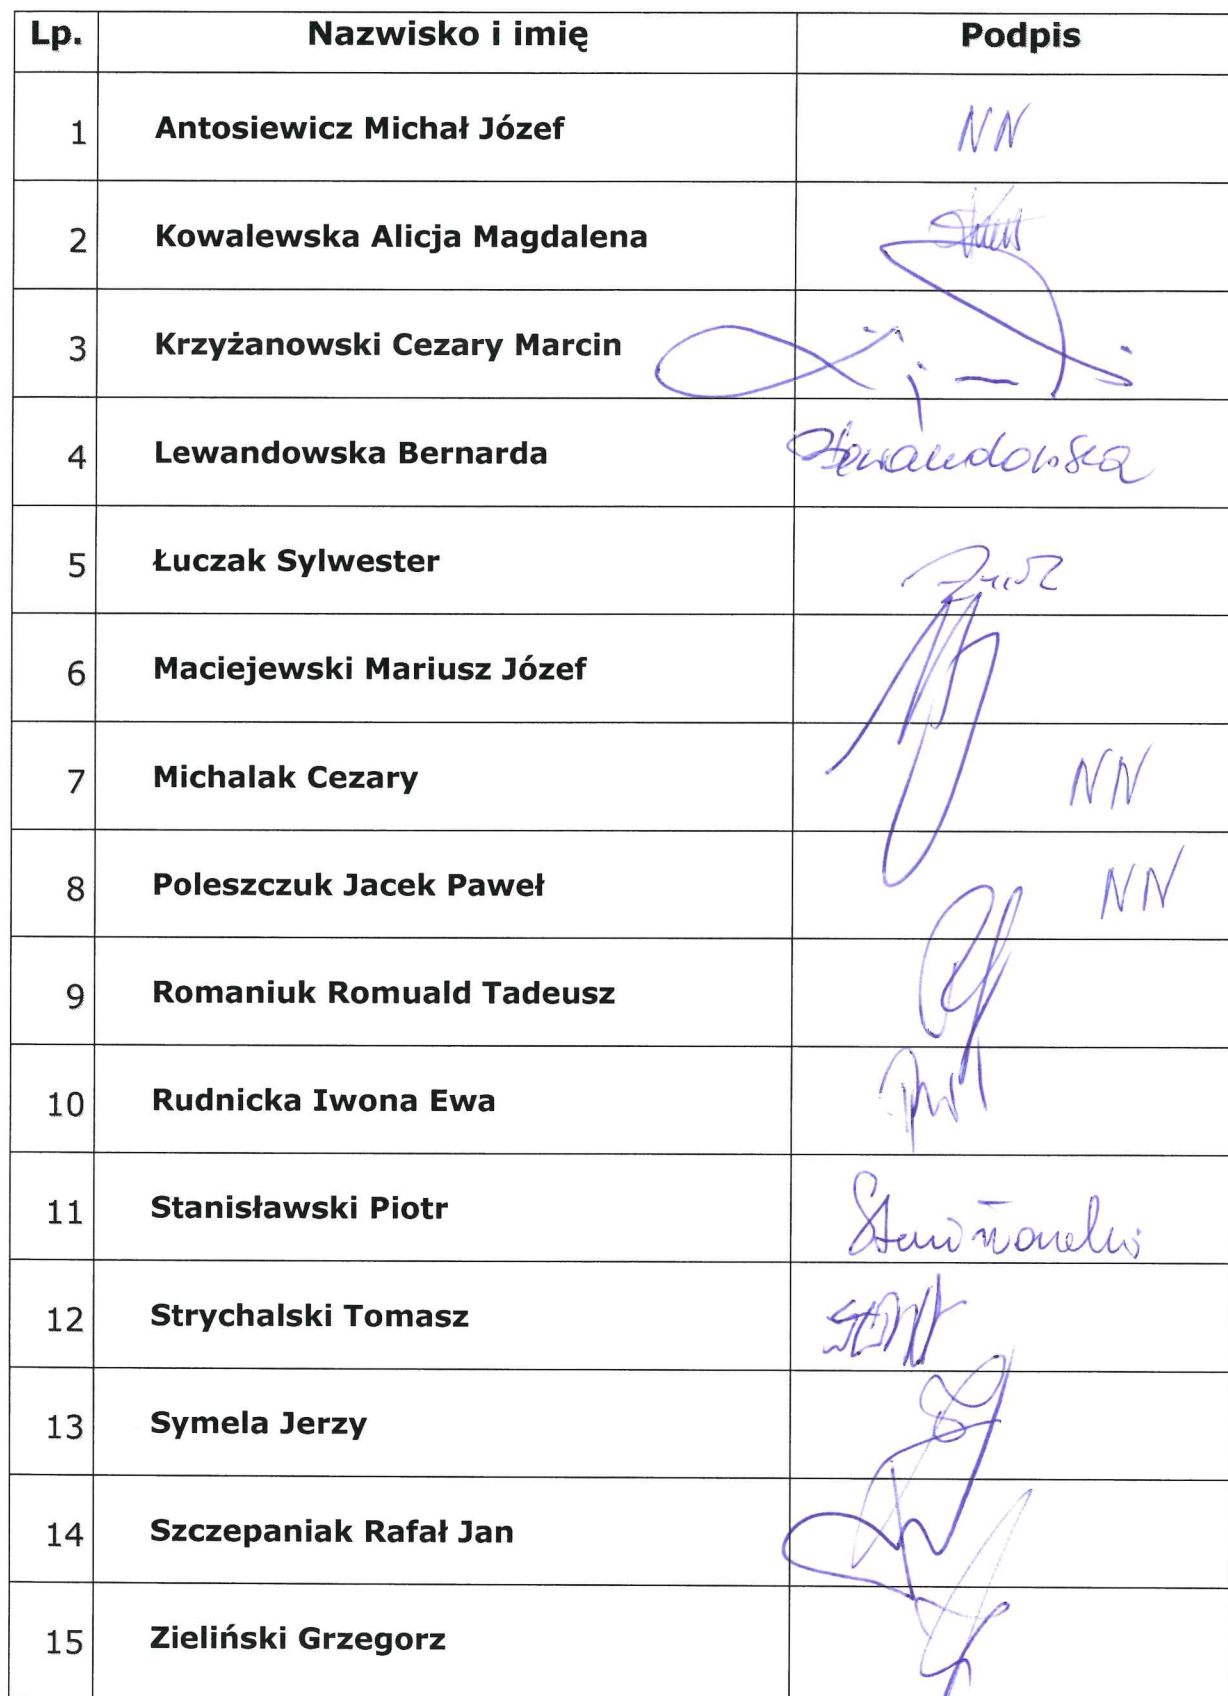 Lp. Nazwisko i imię Podpis
1 Antosiewicz Michał Józef NN
2 Kowalewska Alicja Magdalena
3 Krzyżanowski Cezary Marcin
4 Lewandowska Bernarda Lewandowska
5 Łuczak Sylwester
6 Maciejewski Mariusz Józef
7 Michalak Cezary NN
8 Poleszczuk Jacek Paweł NN
9 Romaniuk Romuald Tadeusz
10 Rudnicka Iwona Ewa
11 Stanisławski Piotr
12 Strychalski Tomasz
13 Symela Jerzy
14 Szczepaniak Rafał Jan
15 Zieliński Grzegorz